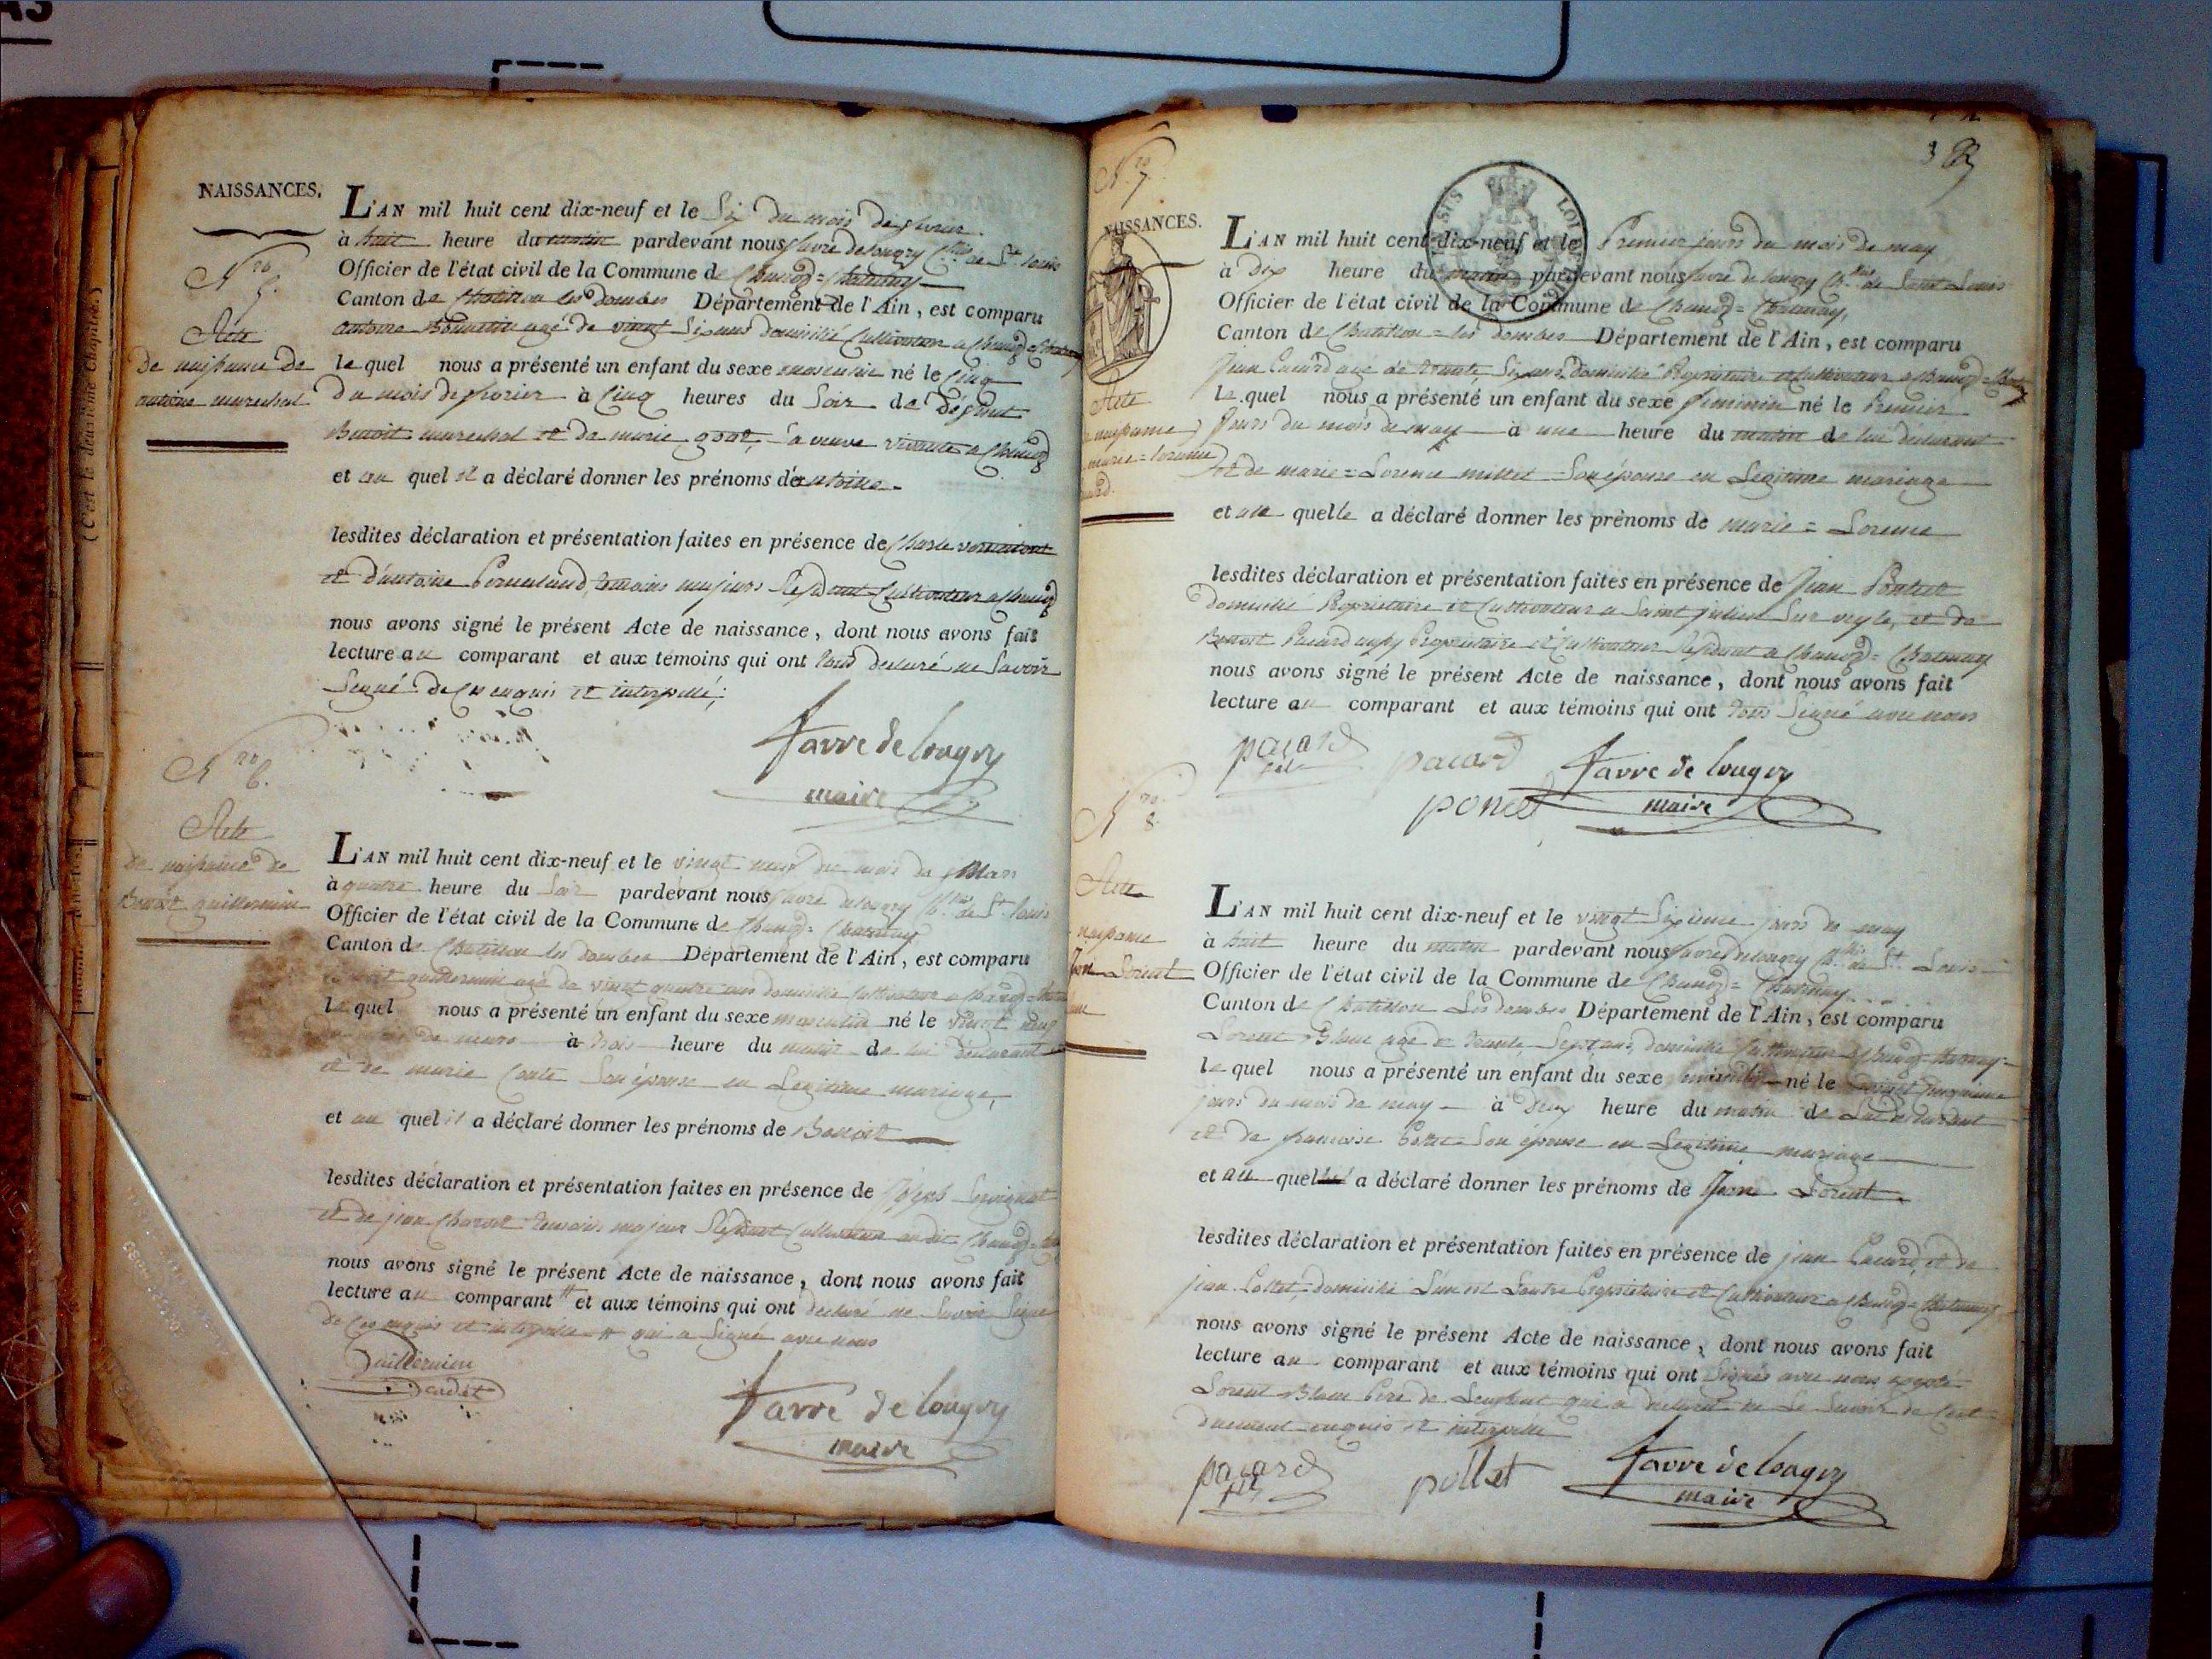 NAISSANCES.
Nro 5.
Acte
de naissance de
antoine marechal
L'AN mil huit cent dix-neuf et le Six du mois de fevrier
à huit heure du matin pardevant nous favre delongry Ch.lier de St. louis
Officier de l'état civil de la Commune de Chanoz=Chatenay
Canton de Chatillon les dombes Département de l'Ain, est comparu
antoine agé de vingt Six ans domicilié Cultivateur a Chanoz=Chatenay
le quel nous a présenté un enfant du sexe masculin né le Cinq
du mois de fevrier à Cinq heures du Soir de défunt
Benoit marechal et de marie Sa veuve vivante a Chanoz
et au quel il a déclaré donner les prénoms de antoine
lesdites déclaration et présentation faites en présence de Charle
et d'antoine temoins majeurs Residant Cultivateur a Chanoz
nous avons signé le présent Acte de naissance, dont nous avons fait
lecture au comparant et aux témoins qui ont tous declaré ne Savoir
Signé de Ce enquis et interpellé;
favre de longry
maire
Nro 6.
Acte
de naissance de
Benoit guillermin
L'AN mil huit cent dix-neuf et le vingt neuf du mois de Mars
à quatre heure du Soir pardevant nous favre delongry Ch.lier de St. louis
Officier de l'état civil de la Commune de Chanoz=Chatenay
Canton de Chatillon les dombes Département de l'Ain, est comparu
guillermin agé de vingt quatre ans domicilié Cultivateur a Chanoz=
le quel nous a présenté un enfant du sexe masculin né le vingt neuf
de mars à trois heure du matin de lui déclarant
et de marie Conte Son épouse en Legitime mariage,
et au quel il a déclaré donner les prénoms de Benoit
lesdites déclaration et présentation faites en présence de Joseph
et de jean Charvet temoins majeur Residant Cultivateur audit Chanoz=
nous avons signé le présent Acte de naissance, dont nous avons fait
lecture au comparant # et aux témoins qui ont declaré ne Savoir Signé
de Ce enquis et interpellé # qui a Signé avec nous
Guillermin
Cadet
favre de longry
maire
Nro 7.
NAISSANCES.
Acte
naissance
marie=lorence
L'AN mil huit cent dix-neuf et le Premier jours du mois de may
à Dix heure du matin pardevant nous favre de longry Ch.lier de Saint Louis
Officier de l'état civil de la Commune de Chanoz=Chatenay,
Canton de Chatillon=les dombes Département de l'Ain, est comparu
Jean Pacard agé de trente Six ans domicilié Propriétaire et Cultivateur a Chanoz=
le quel nous a présenté un enfant du sexe feminin né le Premier
Jours du mois de may à une heure du matin de lui déclarant
et de marie=Lorence millet Son épouse en Legitime mariage
et au quelle a déclaré donner les prènoms de marie=Lorence
lesdites déclaration et présentation faites en présence de Jean
domicilié Propriétaire et Cultivateur a Saint julien Sur veyle, et de
Benoit Pacard aussy Propriétaire et Cultivateur Residant a Chanoz=Chatenay
nous avons signé le présent Acte de naissance, dont nous avons fait
lecture au comparant et aux témoins qui ont tous Signé avec nous
pacard
fils
pacard
favre de longry
poncet
maire
Nro 8.
Acte
naissance
Jean Lorent
L'AN mil huit cent dix-neuf et le vingt Sixieme jours de may
à huit heure du matin pardevant nous favre delongry Ch.lier de St. Louis
Officier de l'état civil de la Commune de Chanoz=Chatenay
Canton de Chatillon Les dombes Département de l'Ain, est comparu
Lorent Blanc agé de trente Sept ans, domicilié Cultivateur a Chanoz=Chatenay=
le quel nous a présenté un enfant du sexe masculin né le vingt
jours du mois de may à deux heure du matin de Lui déclarant
et de francoise Son épouse en Legitime mariage
et au quel a déclaré donner les prénoms de Jean Lorent
lesdites déclaration et présentation faites en présence de jean Pacard, et de
jean Pollet, domicilié L'un et Lautre Propriétaire et Cultivateur a Chanoz=Chatenay
nous avons signé le présent Acte de naissance, dont nous avons fait
lecture au comparant et aux témoins qui ont Signés avec nous excepté
Lorent Blanc Pere de Lenfant qui a declaré ne Le Savoir de Cest
duement enquis et interpellé
pacard
fils
pollet
favre de longry
maire